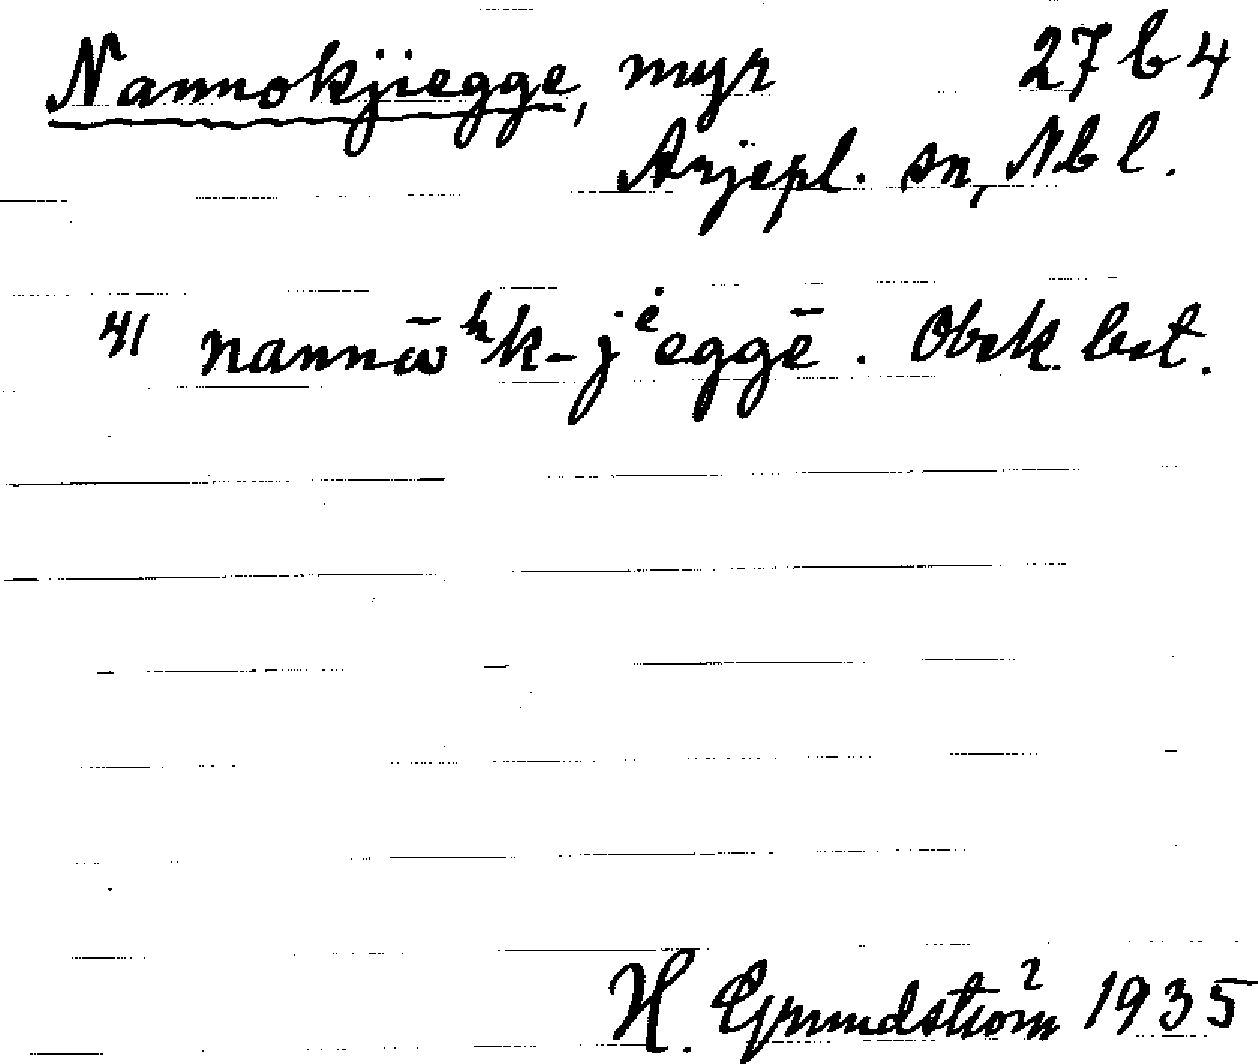 Nannokjiegge, myr 27 b 4
Arjepl. sn, Nbl.
41 nannɷ̄ʰk-jⁱeggē. Obsk. best.
H. Grundström 1935